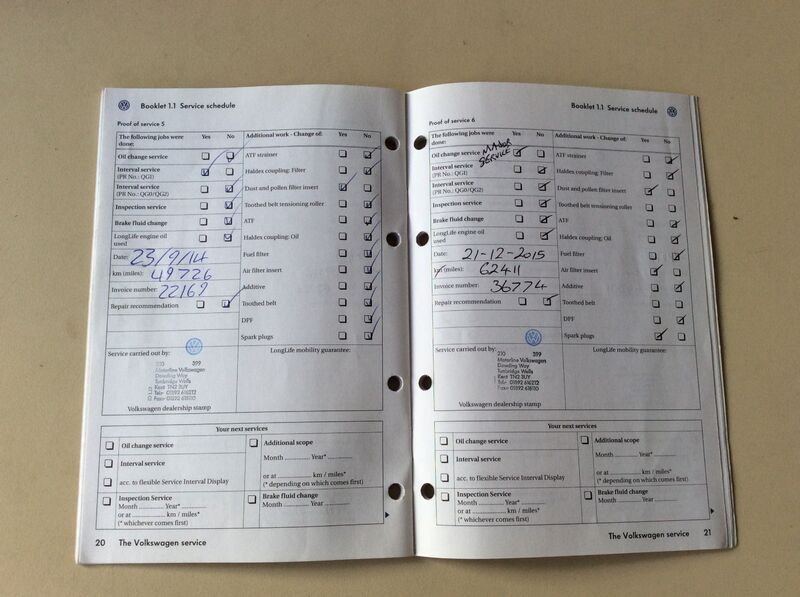 Booklet 1.1 Service schedule
Proof of service 5
The following jobs were done: Yes No
Oil change service
Interval service
(PR No.: QG1)
Interval service
(PR No.: QG0/QG2)
Inspection service
Brake fluid change
LongLife engine oil
used
Date: 23/9/14
km (miles): 49726
Invoice number: 22169
Repair recommendation
Service carried out by:
399
Motorline Volkswagen
Dowding Way
Tunbridge Wells
Kent TN2 3UY
Volkswagen dealership stamp
Additional work - Change of: Yes No
ATF strainer
Haldex coupling: Filter
Dust and pollen filter insert
Toothed belt tensioning roller
ATF
Haldex coupling: Oil
Fuel filter
Air filter insert
Additive
Toothed belt
DPF
Spark plugs
LongLife mobility guarantee:
Your next services
Oil change service
Interval service
acc. to flexible Service Interval Display
Inspection Service
Month ........... Year*...........
or at ........... km / miles*
(* whichever comes first)
Additional scope
Month ........... Year*...........
or at ........... km / miles*
(* depending on which comes first)
Brake fluid change
Month ........... Year ...........
20 The Volkswagen service
Booklet 1.1 Service schedule
Proof of service 6
The following jobs were done: Yes No
Oil change service MAJOR SERVICE
Interval service
(PR No.: QG1)
Interval service
(PR No.: QG0/QG2)
Inspection service
Brake fluid change
LongLife engine oil
used
Date: 21-12-2015
km (miles): 62411
Invoice number: 36774
Repair recommendation
Service carried out by:
210 399
Motorline Volkswagen
Dowding Way
Tunbridge Wells
Kent TN2 3UY
Volkswagen dealership stamp
Additional work - Change of: Yes No
ATF strainer
Haldex coupling: Filter
Dust and pollen filter insert
Toothed belt tensioning roller
ATF
Haldex coupling: Oil
Fuel filter
Air filter insert
Additive
Toothed belt
DPF
Spark plugs
LongLife mobility guarantee:
Your next services
Oil change service
Interval service
acc. to flexible Service Interval Display
Inspection Service
Month ........... Year*...........
or at ........... km / miles*
(* whichever comes first)
Additional scope
Month ........... Year*...........
or at ........... km / miles*
(* depending on which comes first)
Brake fluid change
Month ........... Year ...........
The Volkswagen service 21